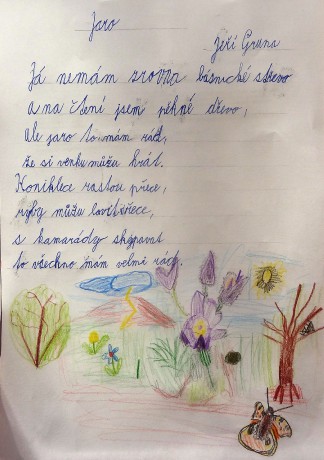 Jaro
Jiří Gruna
Já nemám zrovna básnické střevo
a na čtení jsem pěkné dřevo,
ale jaro to mám rád,
že si venku můžu hrát.
Koniklece rostou přece,
ryby můžu lovit v řece,
s kamarády skotačit
to všechno mám velmi rád.